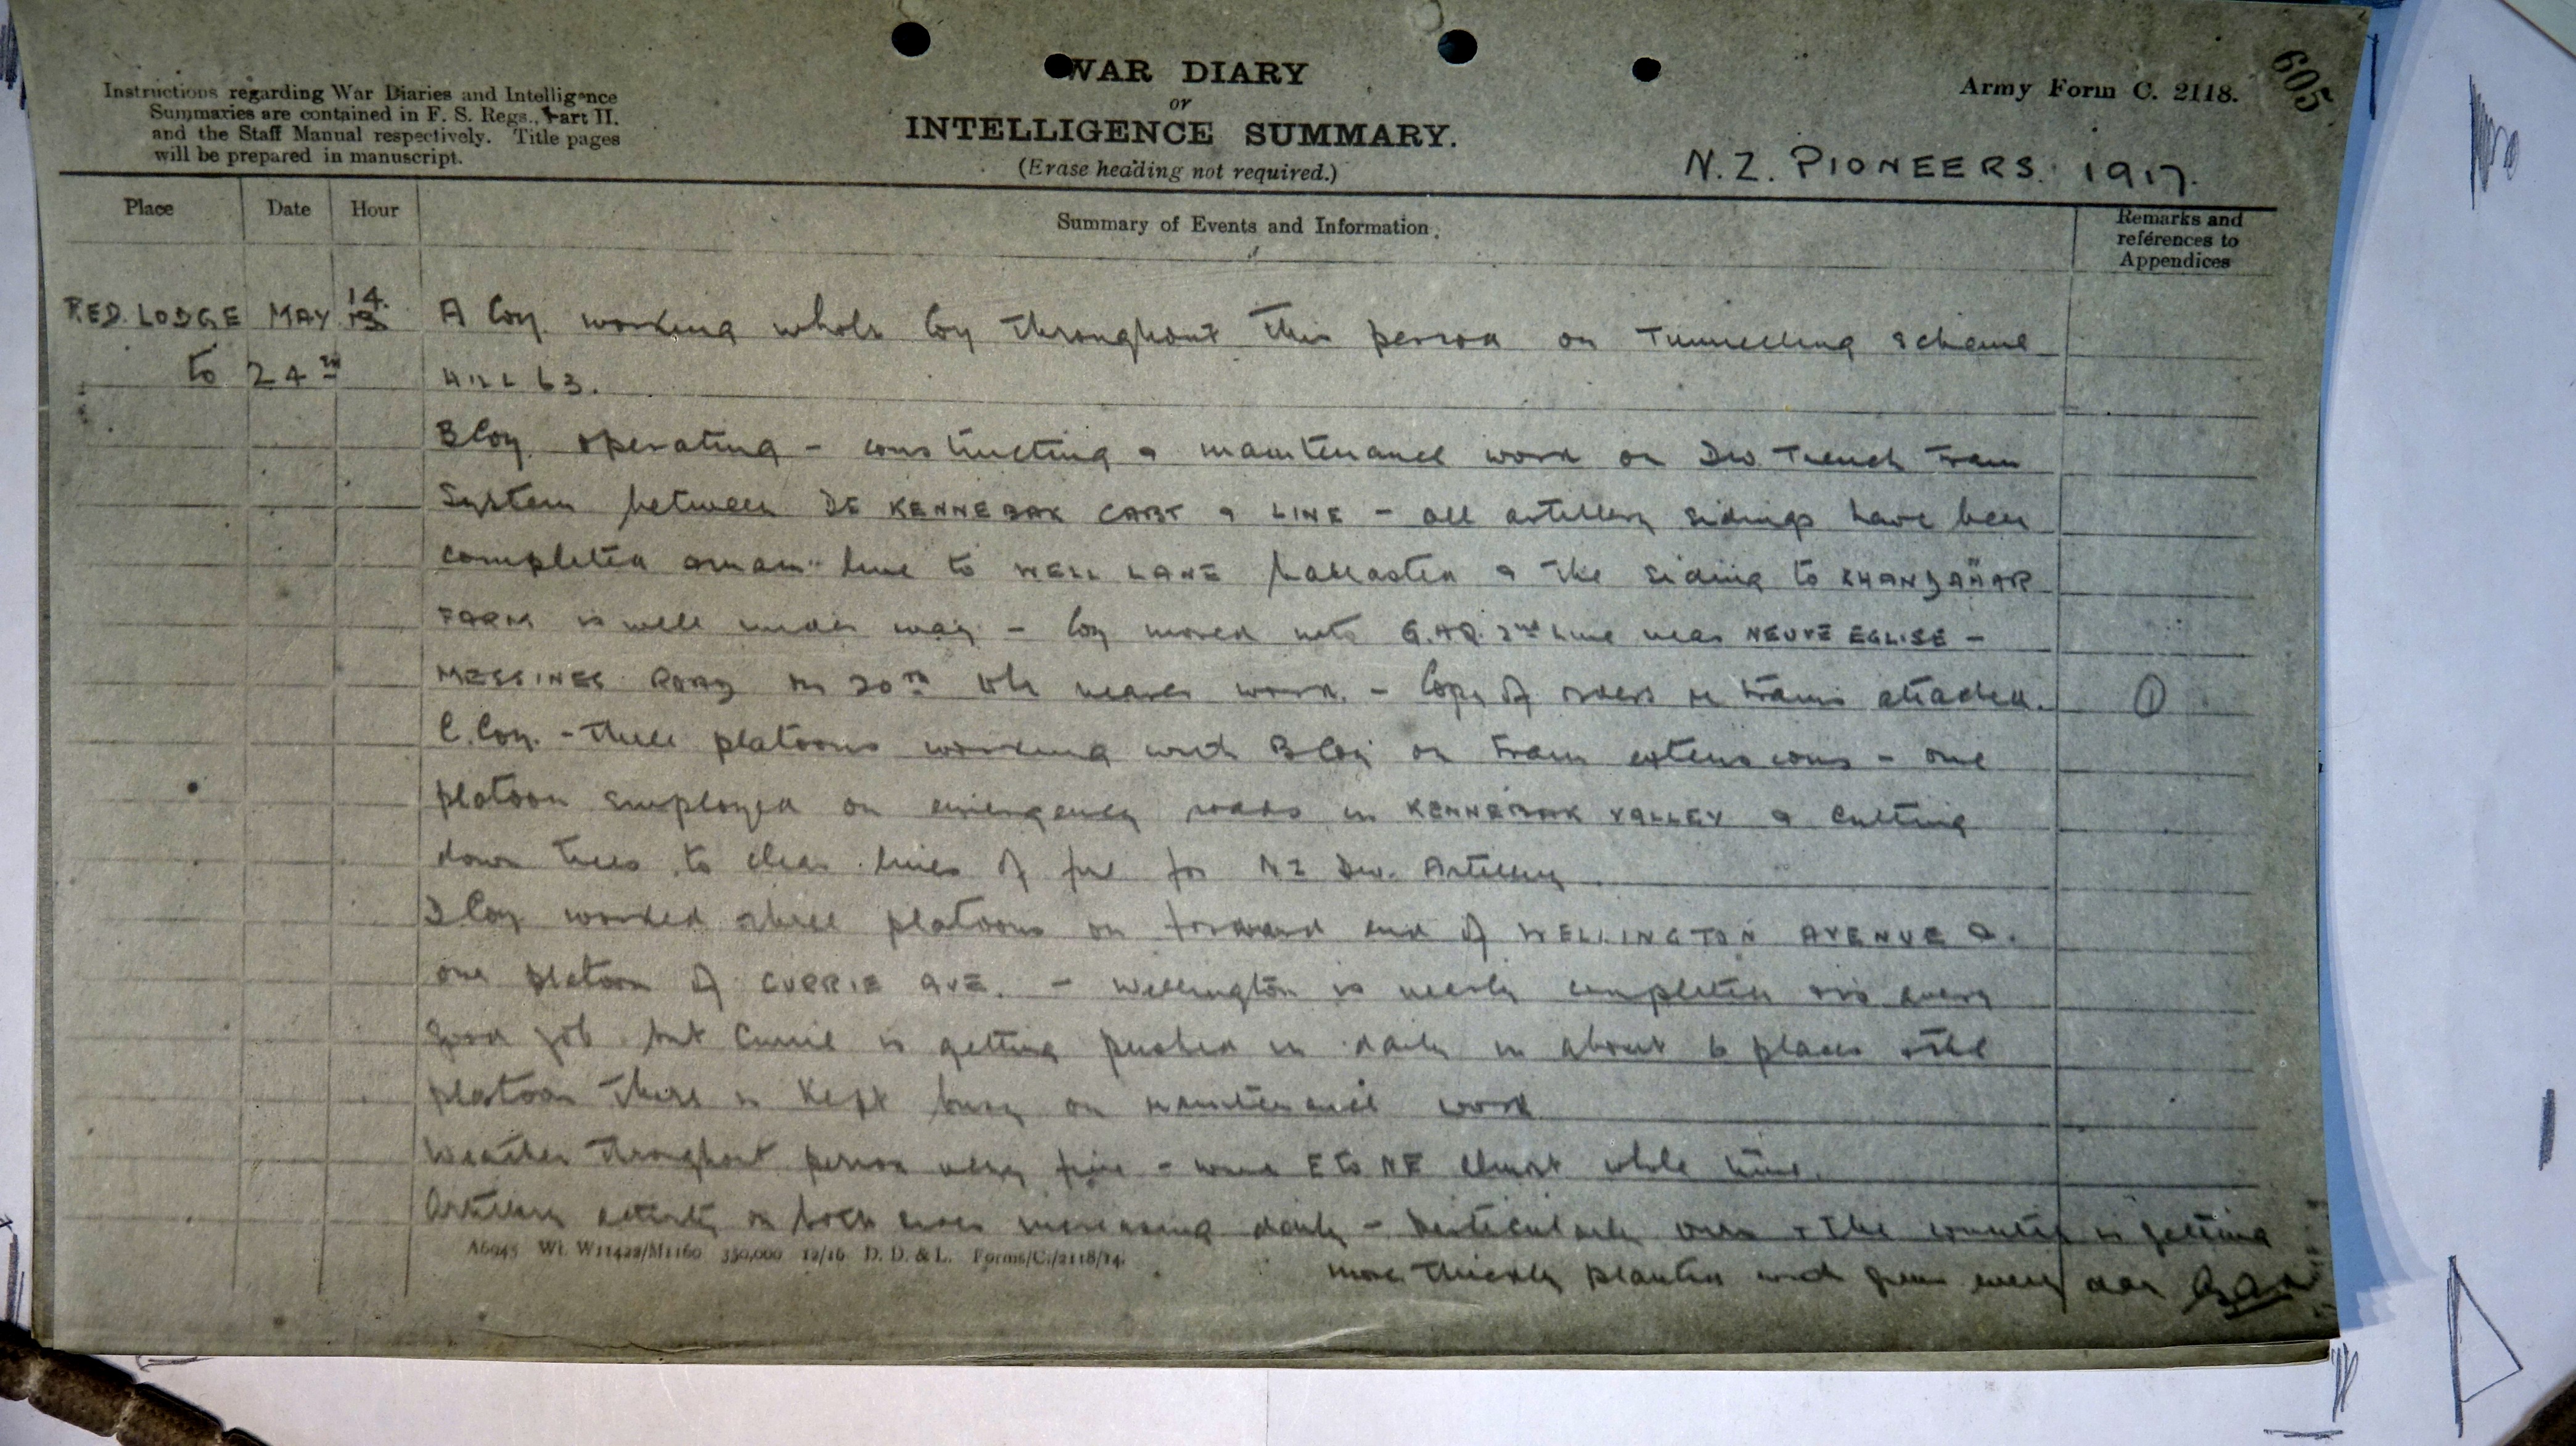 605
Army Form C. 2118.
WAR DIARY
or
INTELLIGENCE SUMMARY.
(Erase heading not required.)
Instructions regarding War Diaries and Intelligence
Summaries are contained in F. S. Regs., Part II.
and the Staff Manual respectively. Title pages
will be prepared in manuscript.
N.Z. PIONEERS. 1917.
Place Date Hour Summary of Events and Information. Remarks and references to Appendices
RED. LODGE MAY 14. A Coy. working whole Coy throughout this period on Tunnelling scheme
to 24th HILL 63.
B Coy operating - constructing & maintenance work on Div. Trench Tram
System between DE KENNEBAK CABT & LINE - all artillery sidings have been
completed & main line to WELL LANE ballasted & the siding to KHANDAHAR
FARM is well under way - Coy moved into G.H.Q. 2nd Line near NEUVE EGLISE -
MESSINES ROAD on 20th to be nearer work. - Copy of orders re trams attached. ①
C. Coy. - three platoons working with B Coy on tram extensions - one
platoon employed on emergency roads in KENNEBAK VALLEY & cutting
down trees to clear lines of fire for NZ Div. Artillery.
D Coy worked three platoons on forward end of WELLINGTON AVENUE &
one platoon of CURRIE AVE. - Wellington is nearly completed & is a very
good job but Currie is getting pushed in daily in about 6 places & the
platoon there is kept busy on maintenance work
Weather throughout period very fine - wind E to NE almost whole time.
Artillery activity on both sides increasing daily - particularly ours & the country is getting
more thickly planted with guns every day
A6945 Wt. W11422/M1160 350,000 12/16 D. D. & L. Forms/C./2118/14.